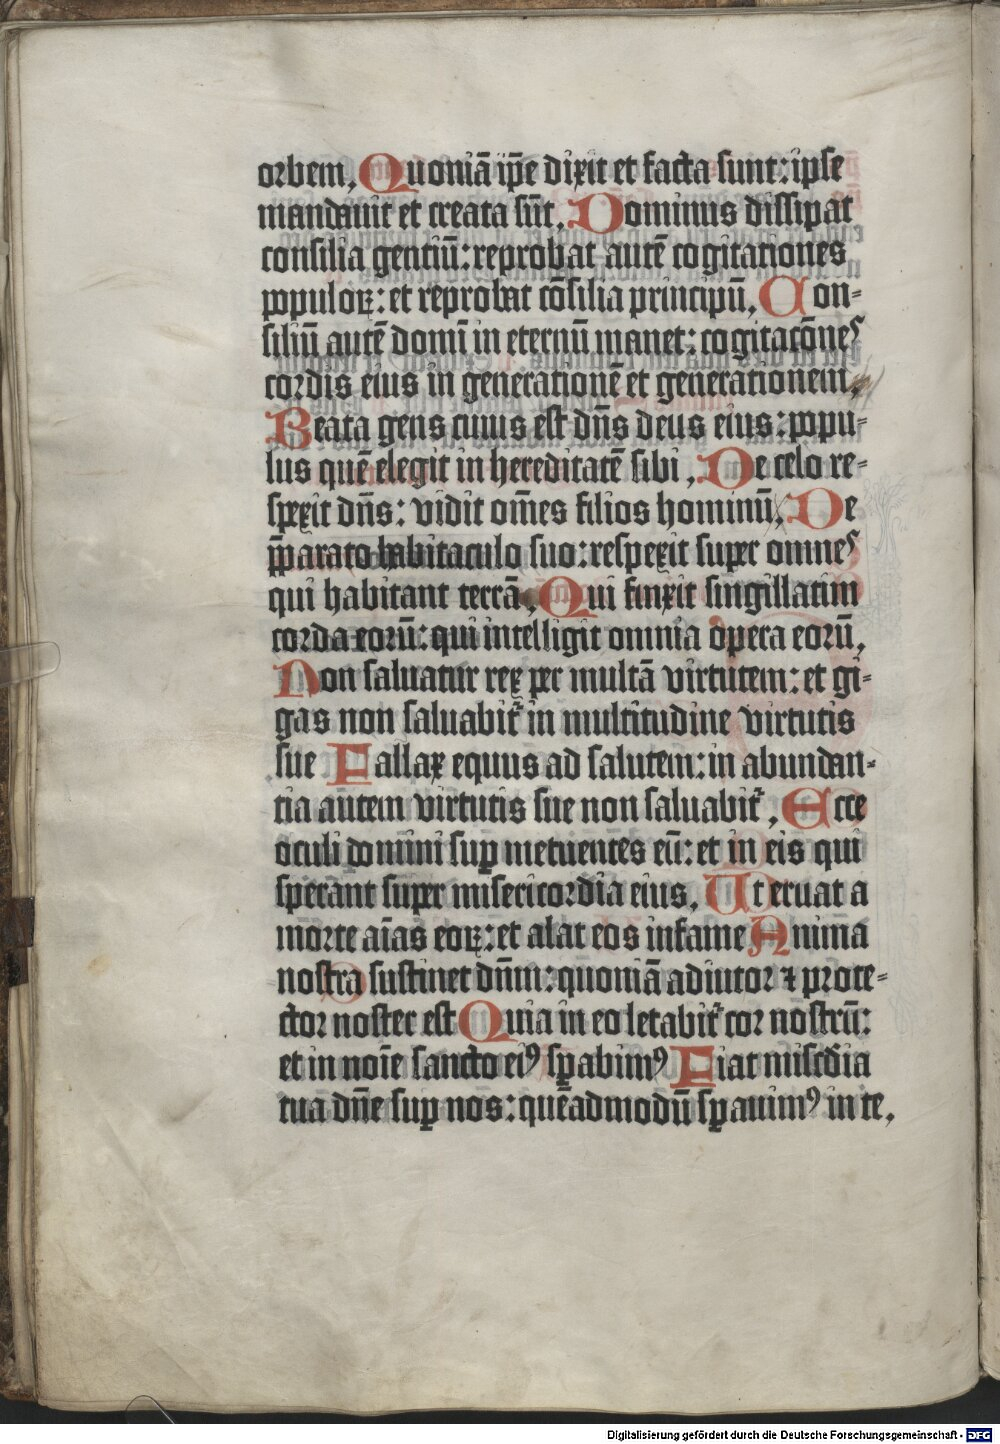 orbem, Quoniā ip̄e dixit et facta sunt: ipse
mandauit et creata sūt, Dominus dissipat
consilia gentiū: reprobat autē cogitationes
populoꝝ: et reprobat cōsilia principū, Con-
siliū autē domī in eternū manet: cogitacōnes
cordis eius in generationē et generationem,
Beata gens cuius est dn̄s deus eius: popu-
lus quē elegit in hereditatē sibi, De celo re-
spexit dn̄s: vidit om̄es filios hominū, De
p̄parato habitaculo suo: respexit super omnes
qui habitant terrā, Qui finxit singillatim
corda eorū: qui intelligit omnia opera eorū,
Non saluatur rex per multā virtutem: et gi-
gas non saluabit᷑ in multitudine virtutis
sue Fallax equus ad salutem: in abundan-
tia autem virtutis sue non saluabit᷑, Ecce
oculi domini suꝑ metuentes eū: et in eis qui
sperant super misericordia eius, Ut eruat a
morte aīas eoꝝ: et alat eos in fame Anima
nostra sustinet dn̄m: quoniā adiutor ⁊ prote-
ctor noster est Quia in eo letabit᷑ cor nostrū:
et in noīe sancto eiꝰ sꝑabimꝰ Fiat miscd̄ia
tua dn̄e suꝑ nos: quēadmodū sꝑauimꝰ in te,
Digitalisierung gefördert durch die Deutsche Forschungsgemeinschaft - DFG